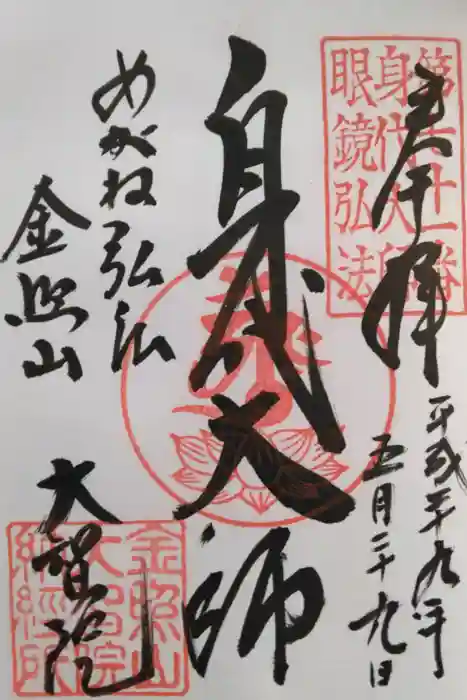 奉拝
平成二十九年
五月二十九日
身代大師
めがね弘法
金照山
大智院
身代大師
眼鏡弘法
金照山
大智院
納経所